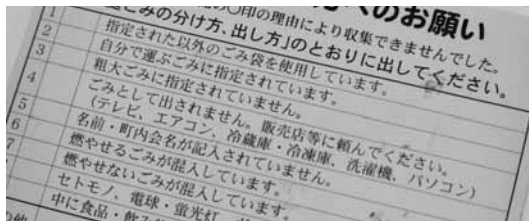 へのお願い
の○印の理由により収集できませんでした。
ごみの分け方、出し方」のとおりに出してください。
1 指定された以外のごみ袋を使用しています。
2 自分で運ぶごみに指定されています。
3 粗大ごみに指定されていません。
4 ごみとして出されません。販売店等に頼んでください。
(テレビ、エアコン、冷蔵庫・冷凍庫、洗濯機、パソコン)
5 名前・町内会名が記入されていません。
6 燃やせるごみが混入しています。
7 燃やせないごみが混入しています。
セトモノ、電球・蛍光灯
の他 中に食品・飲み